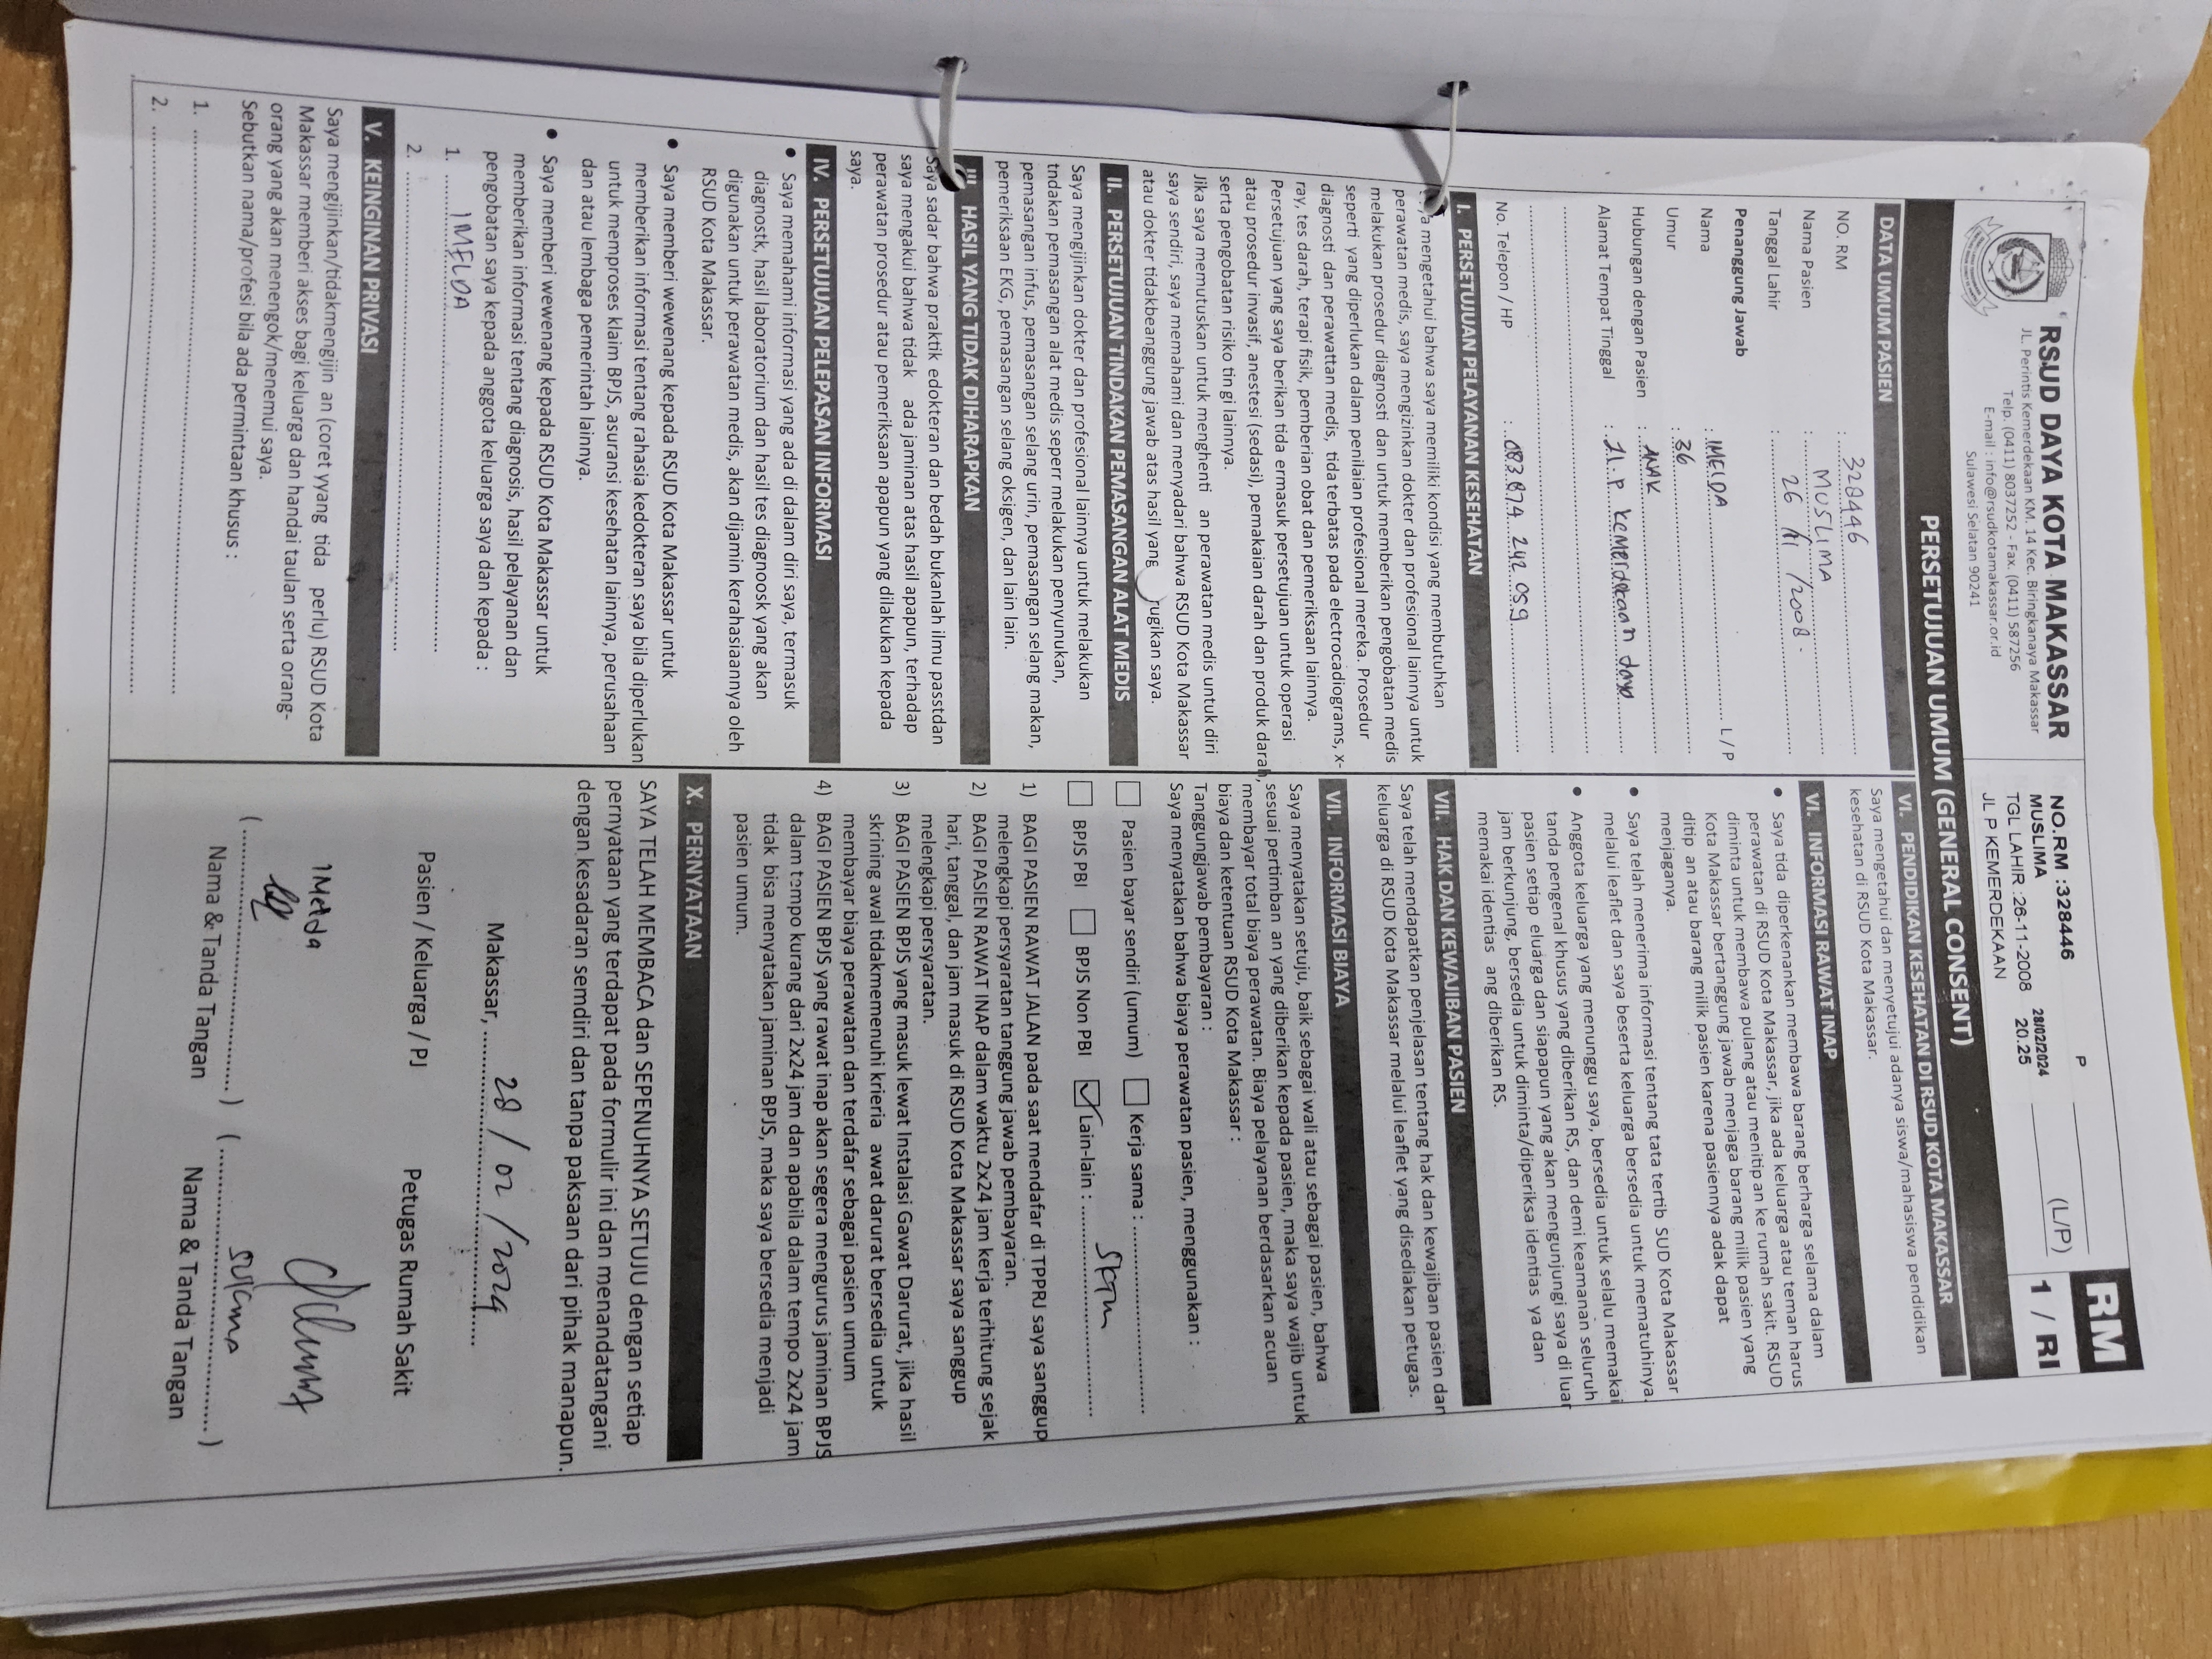 RSUD DAYA KOTA MAKASSAR
JL. Perintis Kemerdekaan KM. 14 Kec. Biringkanaya Makassar
Telp. (0411) 8037252 - Fax. (0411) 587256
E-mail : info@rsudkotamakassar.or.id
Sulawesi Selatan 90241
RM
1 / RI
P
NO.RM :328446
(L/P)
MUSLIMA 28/02/2024
TGL LAHIR :26-11-2008 20.25
JL P KEMERDEKAAN
PERSETUJUAN UMUM (GENERAL CONSENT)
DATA UMUM PASIEN
NO. RM : 328446
Nama Pasien : MUSLIMA
Tanggal Lahir : 26 /11 /2008 -
Penanggung Jawab
Nama : IMELDA L / P
Umur : 36
Hubungan dengan Pasien : ANAK
Alamat Tempat Tinggal : Jl. P kemerdekaan daya
No. Telepon / HP : 083 874 242 059
I. PERSETUJUAN PELAYANAN KESEHATAN
mengetahui bahwa saya memiliki kondisi yang membutuhkan
perawatan medis, saya mengizinkan dokter dan profesional lainnya untuk
melakukan prosedur diagnosti dan untuk memberikan pengobatan medis
seperti yang diperlukan dalam penilaian profesional mereka. Prosedur
diagnosti dan perawattan medis, tida terbatas pada electrocadiograms, x-
ray, tes darah, terapi fisik, pemberian obat dan pemeriksaan lainnya.
Persetujuan yang saya berikan tida ermasuk persetujuan untuk operasi
atau prosedur invasif, anestesi (sedasi), pemakaian darah dan produk darah,
serta pengobatan risiko tin gi lainnya.
Jika saya memutuskan untuk menghenti an perawatan medis untuk diri
saya sendiri, saya memahami dan menyadari bahwa RSUD Kota Makassar
atau dokter tidakbeanggung jawab atas hasil yang rugikan saya.
II. PERSETUJUAN TINDAKAN PEMASANGAN ALAT MEDIS
Saya mengijinkan dokter dan profesional lainnya untuk melakukan
tndakan pemasangan alat medis seperr melakukan penyunukan,
pemasangan infus, pemasangan selang urin, pemasangan selang makan,
pemeriksaan EKG, pemasangan selang oksigen, dan lain lain.
III HASIL YANG TIDAK DIHARAPKAN
Saya sadar bahwa praktik edokteran dan bedah bukanlah ilmu passtdan
saya mengakui bahwa tidak ada jaminan atas hasil apapun, terhadap
perawatan prosedur atau pemeriksaan apapun yang dilakukan kepada
saya.
IV. PERSETUJUAN PELEPASAN INFORMASI
• Saya memahami informasi yang ada di dalam diri saya, termasuk
diagnostk, hasil laboratorium dan hasil tes diagnoosk yang akan
digunakan untuk perawatan medis, akan dijamin kerahasiaannya oleh
RSUD Kota Makassar.
• Saya memberi wewenang kepada RSUD Kota Makassar untuk
memberikan informasi tentang rahasia kedokteran saya bila diperlukan
untuk memproses klaim BPJS, asuransi kesehatan lainnya, perusahaan
dan atau lembaga pemerintah lainnya.
• Saya memberi wewenang kepada RSUD Kota Makassar untuk
memberikan informasi tentang diagnosis, hasil pelayanan dan
pengobatan saya kepada anggota keluarga saya dan kepada :
1. IMELDA
2.
V. KEINGINAN PRIVASI
Saya mengijinkan/tidakmengijin an (coret yyang tida perlu) RSUD Kota
Makassar memberi akses bagi keluarga dan handai taulan serta orang-
orang yang akan menengok/menemui saya.
Sebutkan nama/profesi bila ada permintaan khusus :
1.
2.
VI. PENDIDIKAN KESEHATAN DI RSUD KOTA MAKASSAR
Saya mengetahui dan menyetujui adanya siswa/mahasiswa pendidikan
kesehatan di RSUD Kota Makassar.
VI. INFORMASI RAWAT INAP
• Saya tida diperkenankan membawa barang berharga selama dalam
perawatan di RSUD Kota Makassar, jika ada keluarga atau teman harus
diminta untuk membawa pulang atau menitip an ke rumah sakit. RSUD
Kota Makassar bertanggung jawab menjaga barang milik pasien yang
ditip an atau barang milik pasien karena pasiennya adak dapat
menjaganya.
• Saya telah menerima informasi tentang tata tertib SUD Kota Makassar
melalui leaflet dan saya beserta keluarga bersedia untuk mematuhinya.
• Anggota keluarga yang menunggu saya, bersedia untuk selalu memakai
tanda pengenal khusus yang diberikan RS, dan demi keamanan seluruh
pasien setiap eluarga dan siapapun yang akan mengunjungi saya di luar
jam berkunjung, bersedia untuk diminta/diperiksa identias ya dan
memakai identias ang diberikan RS.
VII. HAK DAN KEWAJIBAN PASIEN
Saya telah mendapatkan penjelasan tentang hak dan kewajiban pasien dan
keluarga di RSUD Kota Makassar melalui leaflet yang disediakan petugas.
VII. INFORMASI BIAYA
Saya menyatakan setuju, baik sebagai wali atau sebagai pasien, bahwa
sesuai pertimban an yang diberikan kepada pasien, maka saya wajib untuk
membayar total biaya perawatan. Biaya pelayanan berdasarkan acuan
biaya dan ketentuan RSUD Kota Makassar :
Tanggungjawab pembayaran :
Saya menyatakan bahwa biaya perawatan pasien, menggunakan :
Pasien bayar sendiri (umum) Kerja sama :
BPJS PBI BPJS Non PBI Lain-lain : Sktm
1) BAGI PASIEN RAWAT JALAN pada saat mendafar di TPPRJ saya sanggup
melengkapi persyaratan tanggung jawab pembayaran.
2) BAGI PASIEN RAWAT INAP dalam waktu 2x24 jam kerja terhitung sejak
hari, tanggal, dan jam masuk di RSUD Kota Makassar saya sanggup
melengkapi persyaratan.
3) BAGI PASIEN BPJS yang masuk lewat Instalasi Gawat Darurat, jika hasil
skrining awal tidakmemenuhi krieria awat darurat bersedia untuk
membayar biaya perawatan dan terdafar sebagai pasien umum
4) BAGI PASIEN BPJS yang rawat inap akan segera mengurus jaminan BPJS
dalam tempo kurang dari 2x24 jam dan apabila dalam tempo 2x24 jam
tidak bisa menyatakan jaminan BPJS, maka saya bersedia menjadi
pasien umum.
X. PERNYATAAN
SAYA TELAH MEMBACA dan SEPENUHNYA SETUJU dengan setiap
pernyataan yang terdapat pada formulir ini dan menandatangani
dengan kesadaran semdiri dan tanpa paksaan dari pihak manapun.
Makassar, 28 / 02 / 2024
Pasien / Keluarga / PJ Petugas Rumah Sakit
IMelda
Nama & Tanda Tangan Nama & Tanda Tangan